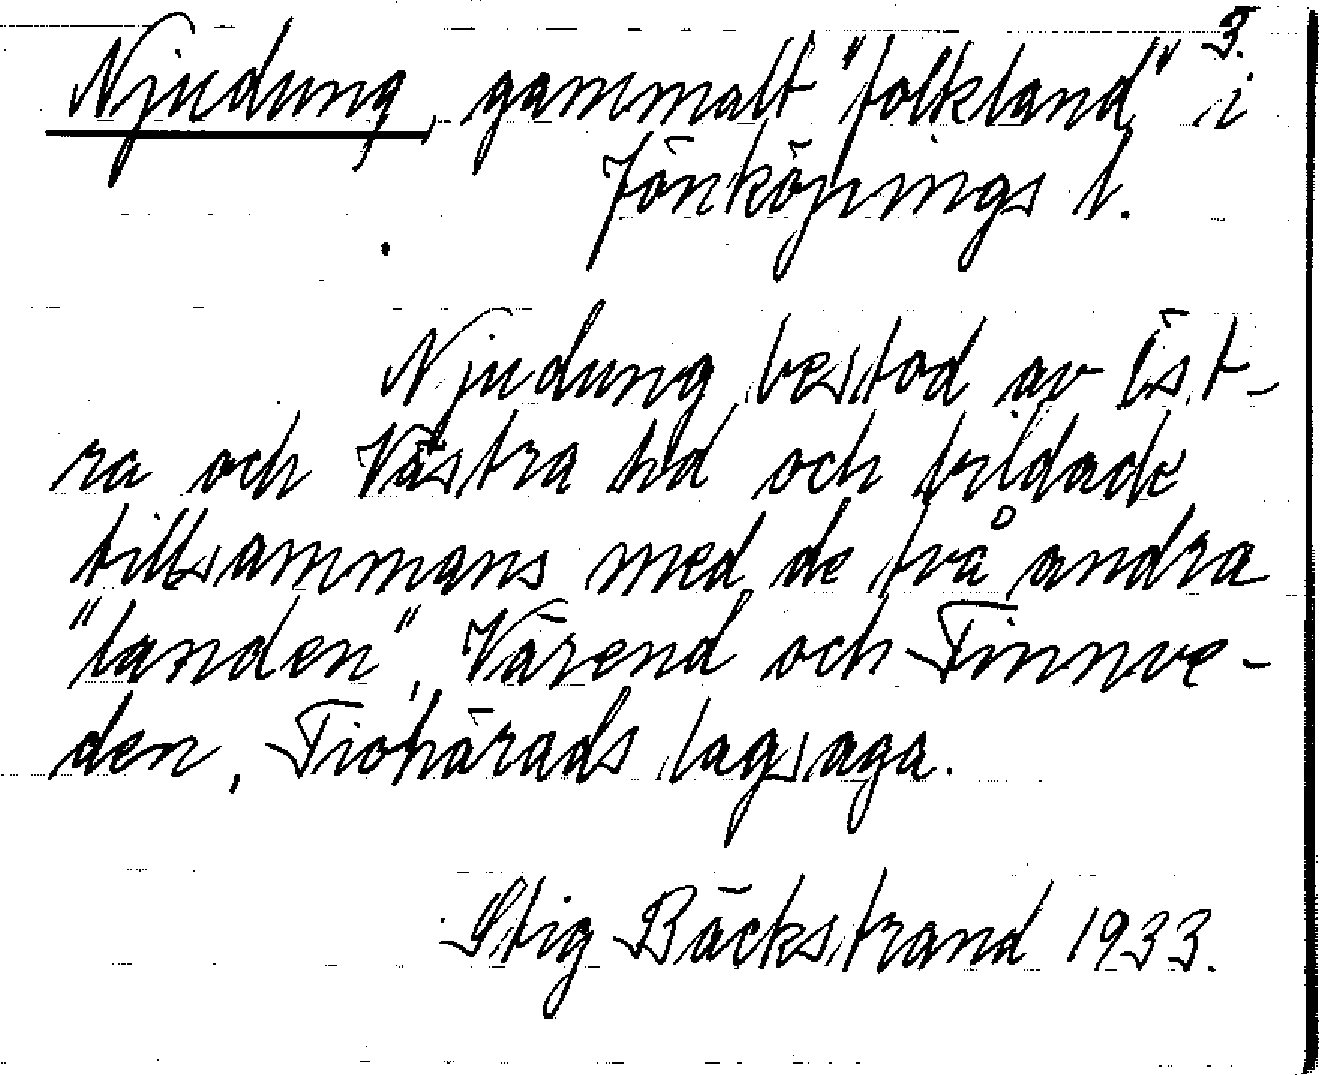 3.
Njudung, gammalt "folkland" i
Jönköpings l.
Njudung bestod av Öst-
ra och Västra hd och bildade
tillsammans med de två andra
"landen", Värend och Finnve-
den, Tiohärads lagsaga.
Stig Bäckstrand 1933.